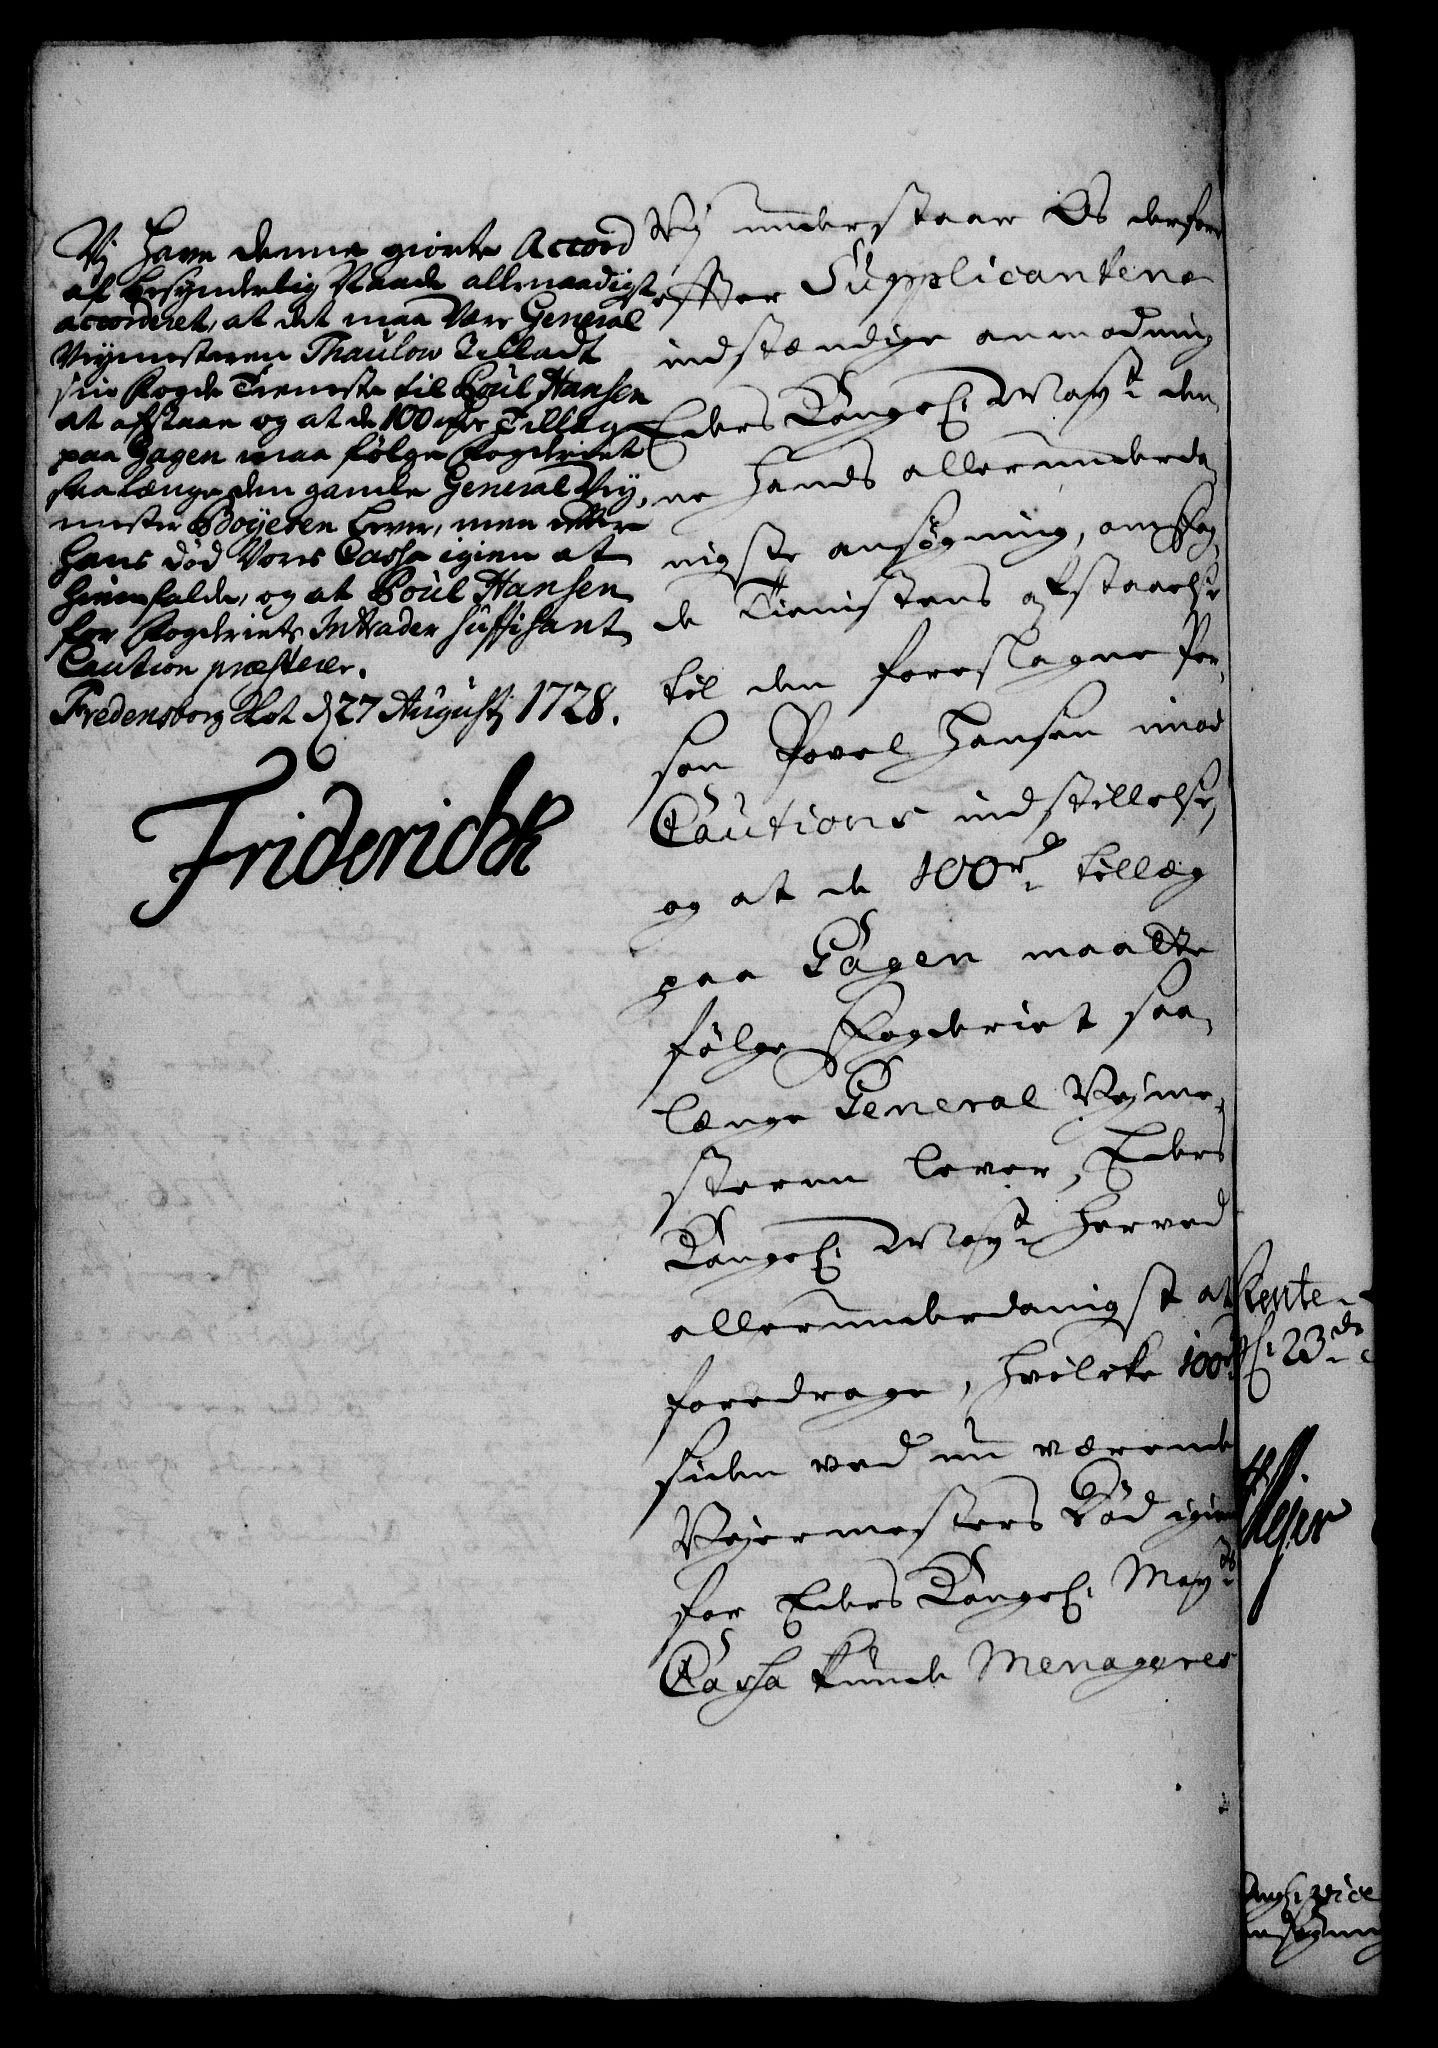 Vj Have denne giorte Accord
af besynderlig Naade allernaadigst
accorderet, at det maa Vor General
Vejmesteren Thaulow Tilladt
sin Fogde Tieneste til Poul Hansen
at afstaae og at de 100 rdr Tillæg
paa Gagen maa følge Fogderiet
saa længe den gamle General Vej,
mester Boyesen lever, men efter
hans død Vores Cassa igien at
hiemfalde, og at Poul Hansen
for Fogderiets Intrader suffisant
Caution præsterer.
Fredensborg Slot d 27 Augusti 1728.
Friderich R
Vij understaar Os derfore
effter Supplicantens
indstændige anmodning
Eders Kongel: Mayt den,
ne hands allerunderda,
nigste ansøgning, om Fog,
de Tienistens afstaaelse
til den foreslagne Per,
son Povel Hansen imod
Cautions indstillelse,
og at de 100 rd tillæg
paa Gagen maatte
følge Fogderiet saa,
længe General Vejme,
steren lever, Eders
Kongel: Mayt herved
allerunderdanigst at
foredrage, hvilke 100 rd
siden ved nu værende
Vejermesters Død igien
for Eders Kongel: Mayts
Cassa kunde Menageres
Rente-
23de
Mejer
ansøgning